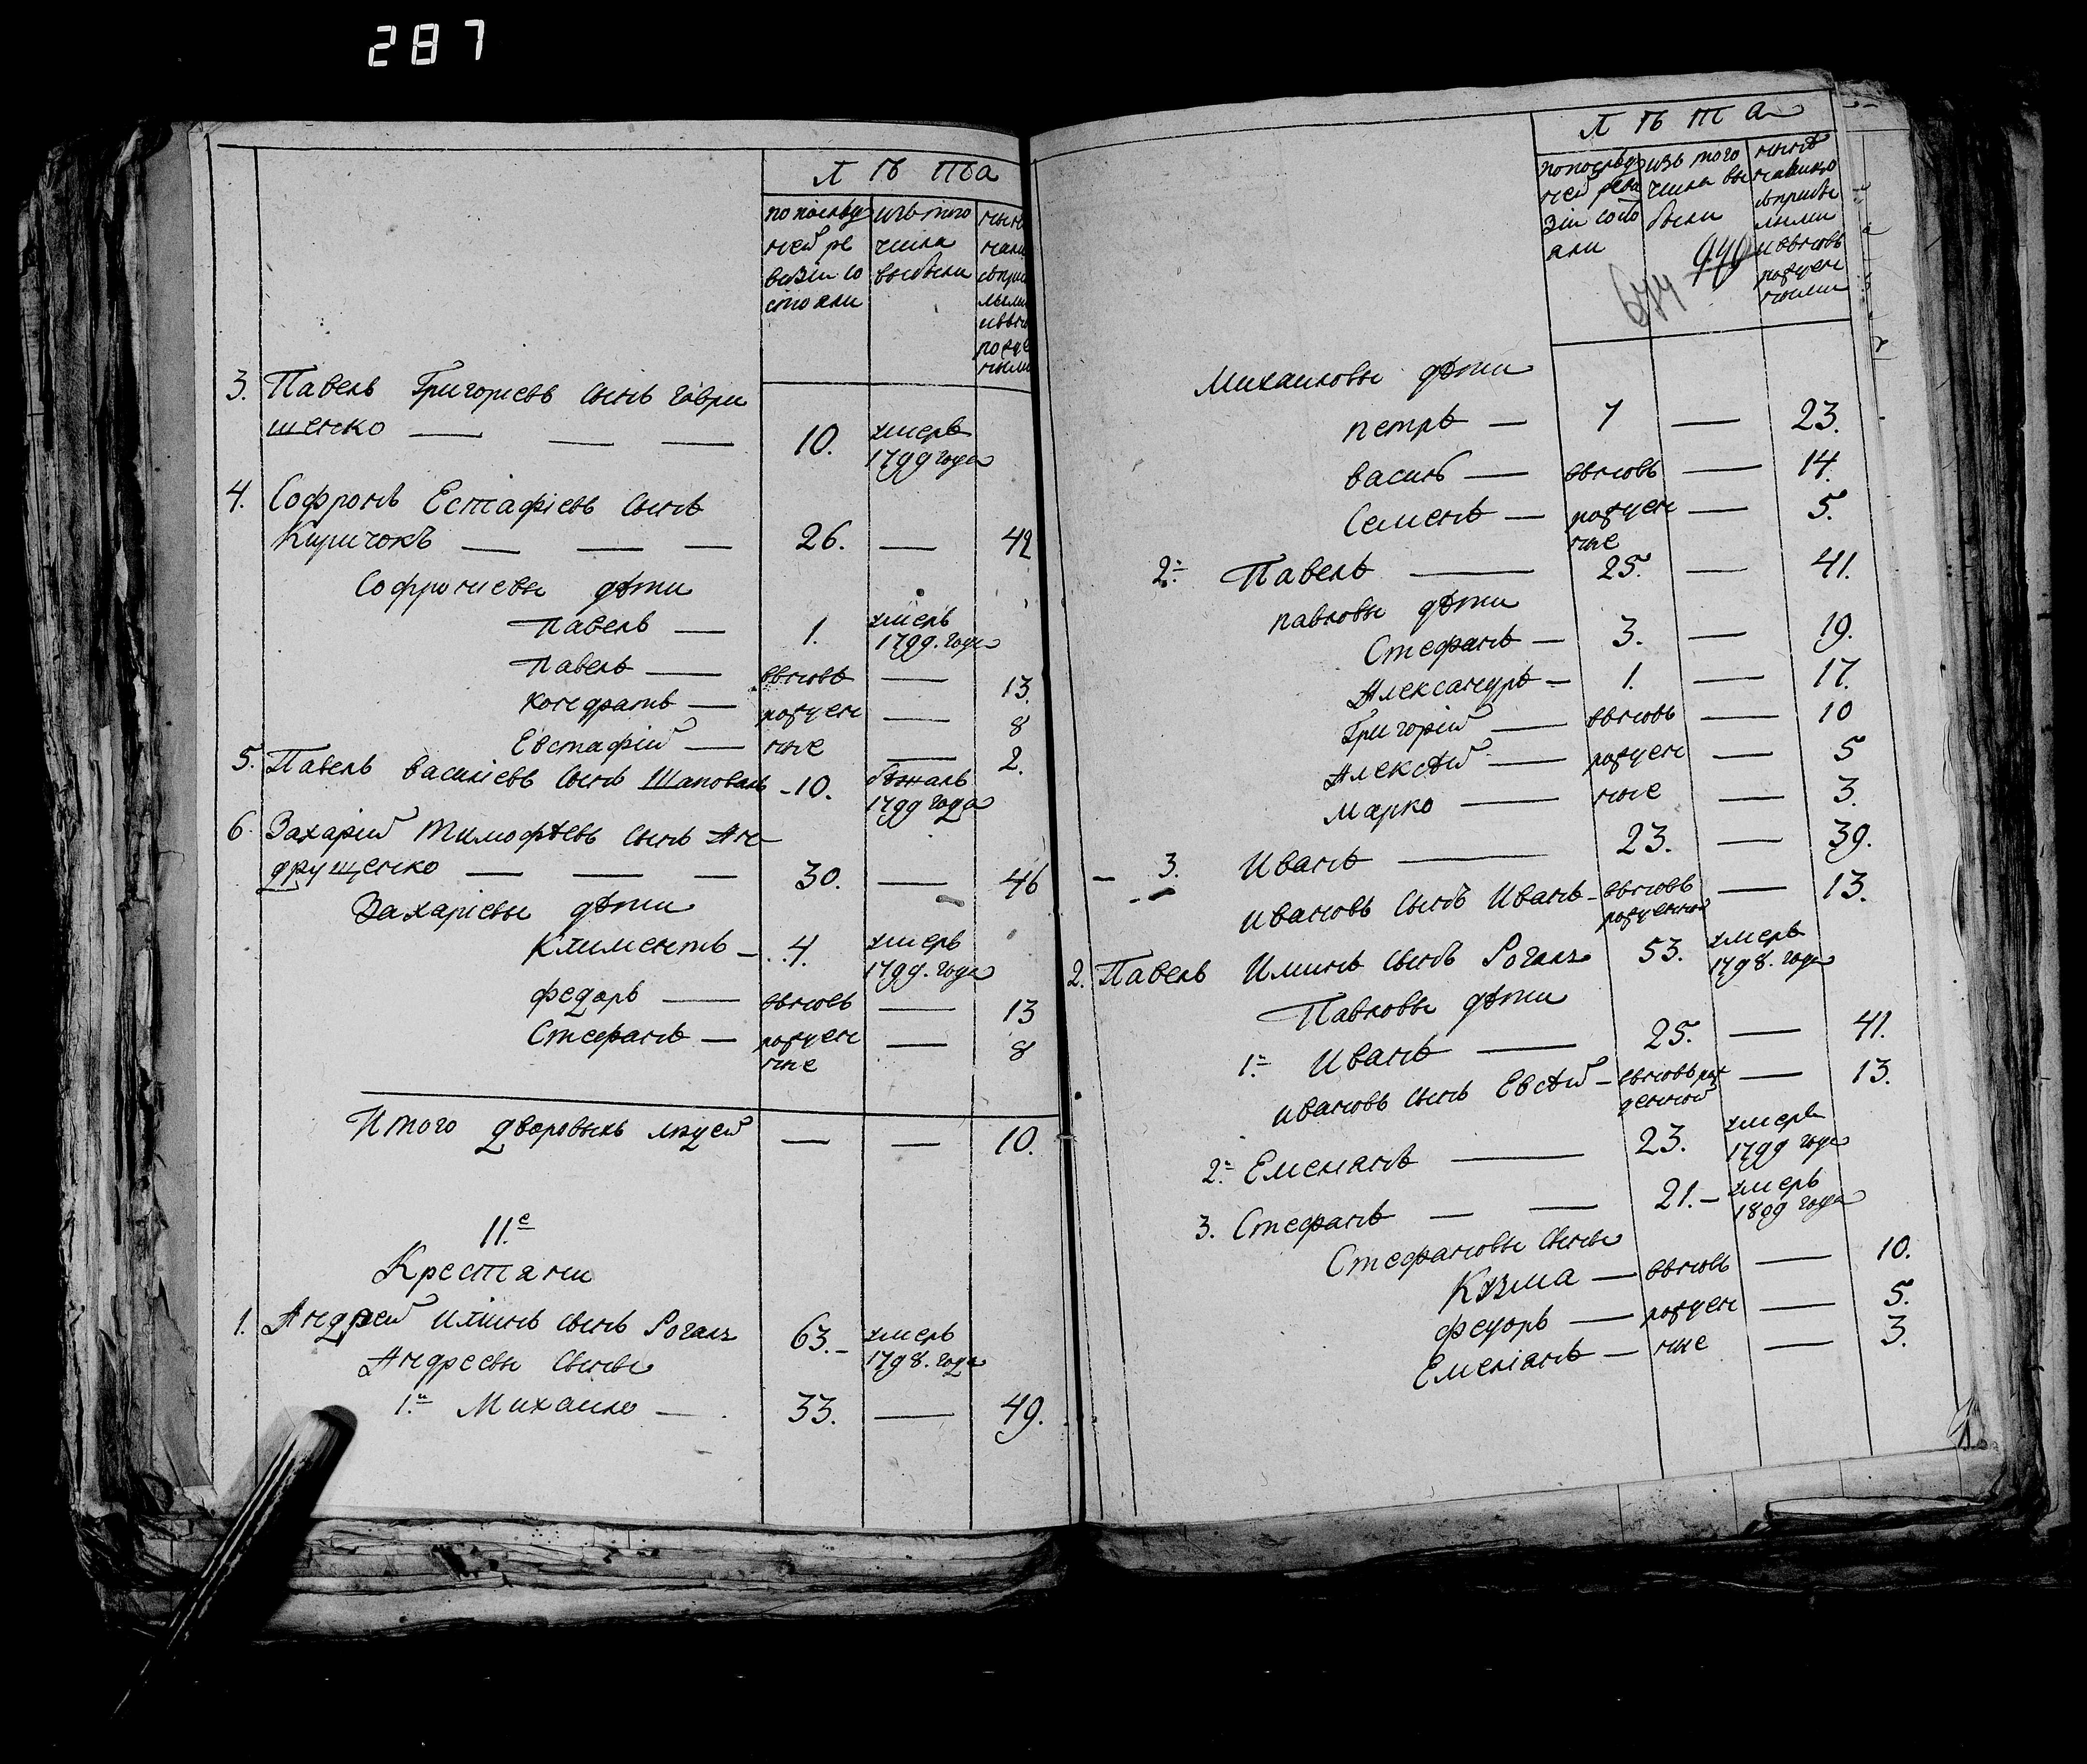 287
Л ѣ та
по послѣд
ней ре
визіи со
стояли
изъ того
числа
выбыли
3. Павелъ Григоріевъ сынъ Гаври
шенко — — — 10. умеръ
1799 года
4. Софронъ Естафіевъ сынъ
Куричокъ — — — 26. — 42
Софроніевы дѣти
Павелъ — 1. умеръ
1799. года
Павелъ — вновь — 13
Кондратъ — рожден — 8
Евстафій — ные — 2.
5. Павелъ Василіевъ сынъ Шаповалъ - 10. бѣжалъ
1799 года
6. Захарій Тимофѣевъ сынъ Ан-
друщенко — — — 30. — 46
Захаріевы дѣти
Климентъ — 4. умеръ
1799. года
Федоръ — вновь — 13
Стефанъ — рожден — 8
ные
Итого дворовыхъ людей — — 10.
11.е
Крестяни
1. Андрей Иліинъ сынъ Рогаль 63. - умеръ
1798. года
Андреевы сыны
1.й Михаило — 33. — 49.
Л ѣ т а
по послѣд
ней реви
зіи состо
яли
изъ того
числа вы
были
нынѣ
на лицо
съ прибы
лыми
и вновь
рожден
ными
990
674
Михаиловы дѣти
Петръ — 7 — 23.
Василь — вновь — 14.
Семенъ — рожден — 5.
ные
2.й Павелъ — 25. — 41.
Павловы дѣти
Стефанъ — 3. — 19.
Александръ — 1. — 17.
Григорій — вновь — 10
Алексѣй — рожден — 5
Марко — ные — 3.
3. Иванъ — 23. — 39.
Ивановъ сынъ Иванъ - вновь — 13.
рожденной
2. Павелъ Илиинъ сынъ Рогаль 53. умеръ
1798. года
Павловы дѣти
1.й Иванъ — 25. — 41.
Ивановъ сынъ Евсѣй - вновь рож — 13.
денной
2.й Емелянъ — 23. умеръ
1799 года
3. Стефанъ — — 21. - умеръ
1809 года
Стефановы сыны
Кузма — вновь — 10.
Федоръ — рожден — 5.
Емеліянъ — ные — 3.